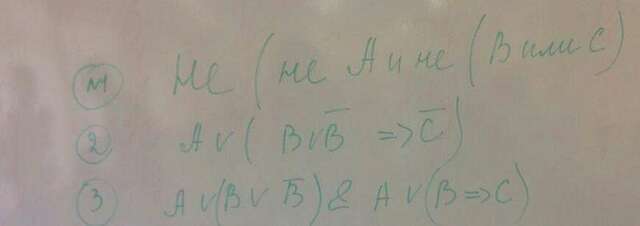 №1 Не (не А и не (В или С)
2 A ∨ ( B ∨ B̅ => C̅ )
3 A ∨ (B ∨ B̅) & A ∨ (B => C)